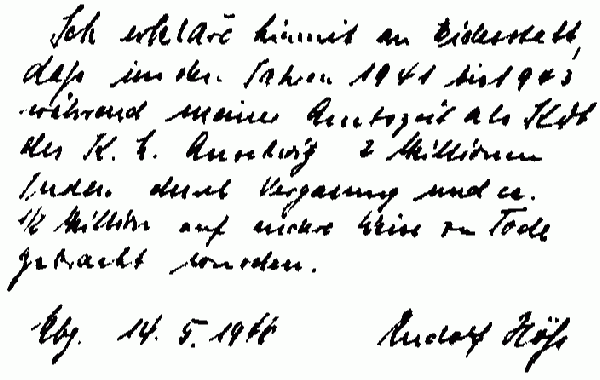 Ich erkläre hiermit an Eidesstatt,
daß in den Jahren 1941 bis 1943
während meiner Amtszeit als Kdt
des K. L. Auschwitz 2 Millionen
Juden durch Vergasung und ca.
1/2 Million auf andere Weise zu Tode
gebracht wurden.
Nbg. 14. 5. 1946 Rudolf Höß